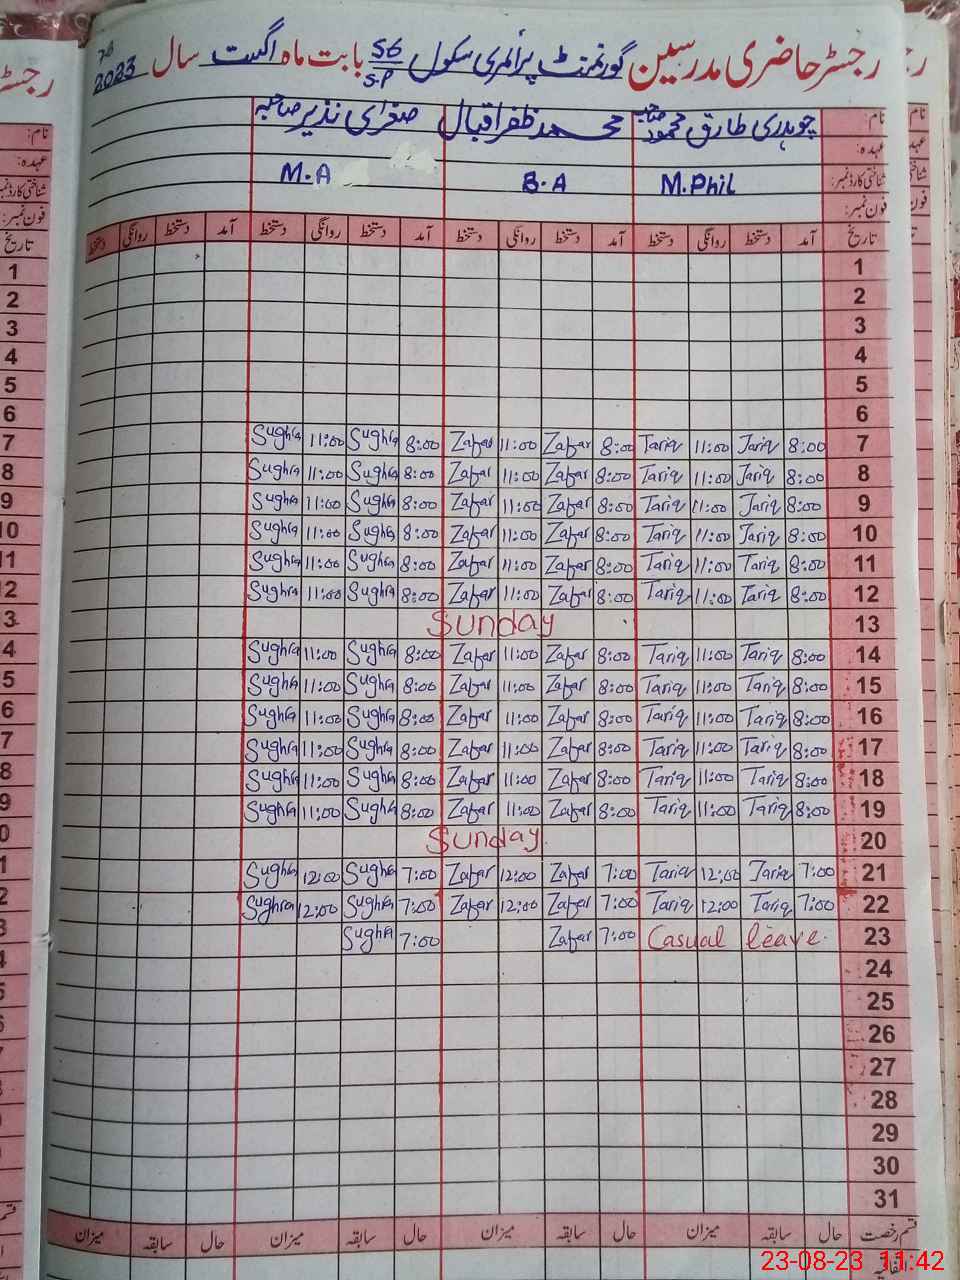 رجسٹر حاضری مدرسین گورنمنٹ پرائمری سکول 56/SP بابت ماہ اگست سال 2023
نام: چوہدری طارق محمود صاحب محمد ظفر اقبال صغرای نذیر صاحبہ
عہدہ:
شناختی کارڈ نمبر: M.Phil B.A M.A
فون نمبر:
تاریخ آمد دستخط روانگی دستخط آمد دستخط روانگی دستخط آمد دستخط روانگی دستخط آمد دستخط روانگی دستخط
1
2
3
4
5
6
7 8:00 Tariq 11:00 Tariq 8:00 Zafar 11:00 Zafar 8:00 Sughra 11:00 Sughra
8 8:00 Tariq 11:00 Tariq 8:00 Zafar 11:00 Zafar 8:00 Sughra 11:00 Sughra
9 8:00 Tariq 11:00 Tariq 8:00 Zafar 11:00 Zafar 8:00 Sughra 11:00 Sughra
10 8:00 Tariq 11:00 Tariq 8:00 Zafar 11:00 Zafar 8:00 Sughra 11:00 Sughra
11 8:00 Tariq 11:00 Tariq 8:00 Zafar 11:00 Zafar 8:00 Sughra 11:00 Sughra
12 8:00 Tariq 11:00 Tariq 8:00 Zafar 11:00 Zafar 8:00 Sughra 11:00 Sughra
13 Sunday
14 8:00 Tariq 11:00 Tariq 8:00 Zafar 11:00 Zafar 8:00 Sughra 11:00 Sughra
15 8:00 Tariq 11:00 Tariq 8:00 Zafar 11:00 Zafar 8:00 Sughra 11:00 Sughra
16 8:00 Tariq 11:00 Tariq 8:00 Zafar 11:00 Zafar 8:00 Sughra 11:00 Sughra
17 8:00 Tariq 11:00 Tariq 8:00 Zafar 11:00 Zafar 8:00 Sughra 11:00 Sughra
18 8:00 Tariq 11:00 Tariq 8:00 Zafar 11:00 Zafar 8:00 Sughra 11:00 Sughra
19 8:00 Tariq 11:00 Tariq 8:00 Zafar 11:00 Zafar 8:00 Sughra 11:00 Sughra
20 Sunday
21 7:00 Tariq 12:00 Tariq 7:00 Zafar 12:00 Zafar 7:00 Sughra 12:00 Sughra
22 7:00 Tariq 12:00 Tariq 7:00 Zafar 12:00 Zafar 7:00 Sughra 12:00 Sughra
23 Casual leave. 7:00 Zafar 7:00 Sughra
24
25
26
27
28
29
30
31
قسم رخصت حال سابقہ میزان حال سابقہ میزان حال سابقہ میزان حال سابقہ میزان
اتفاقیہ
23-08-23 11:42